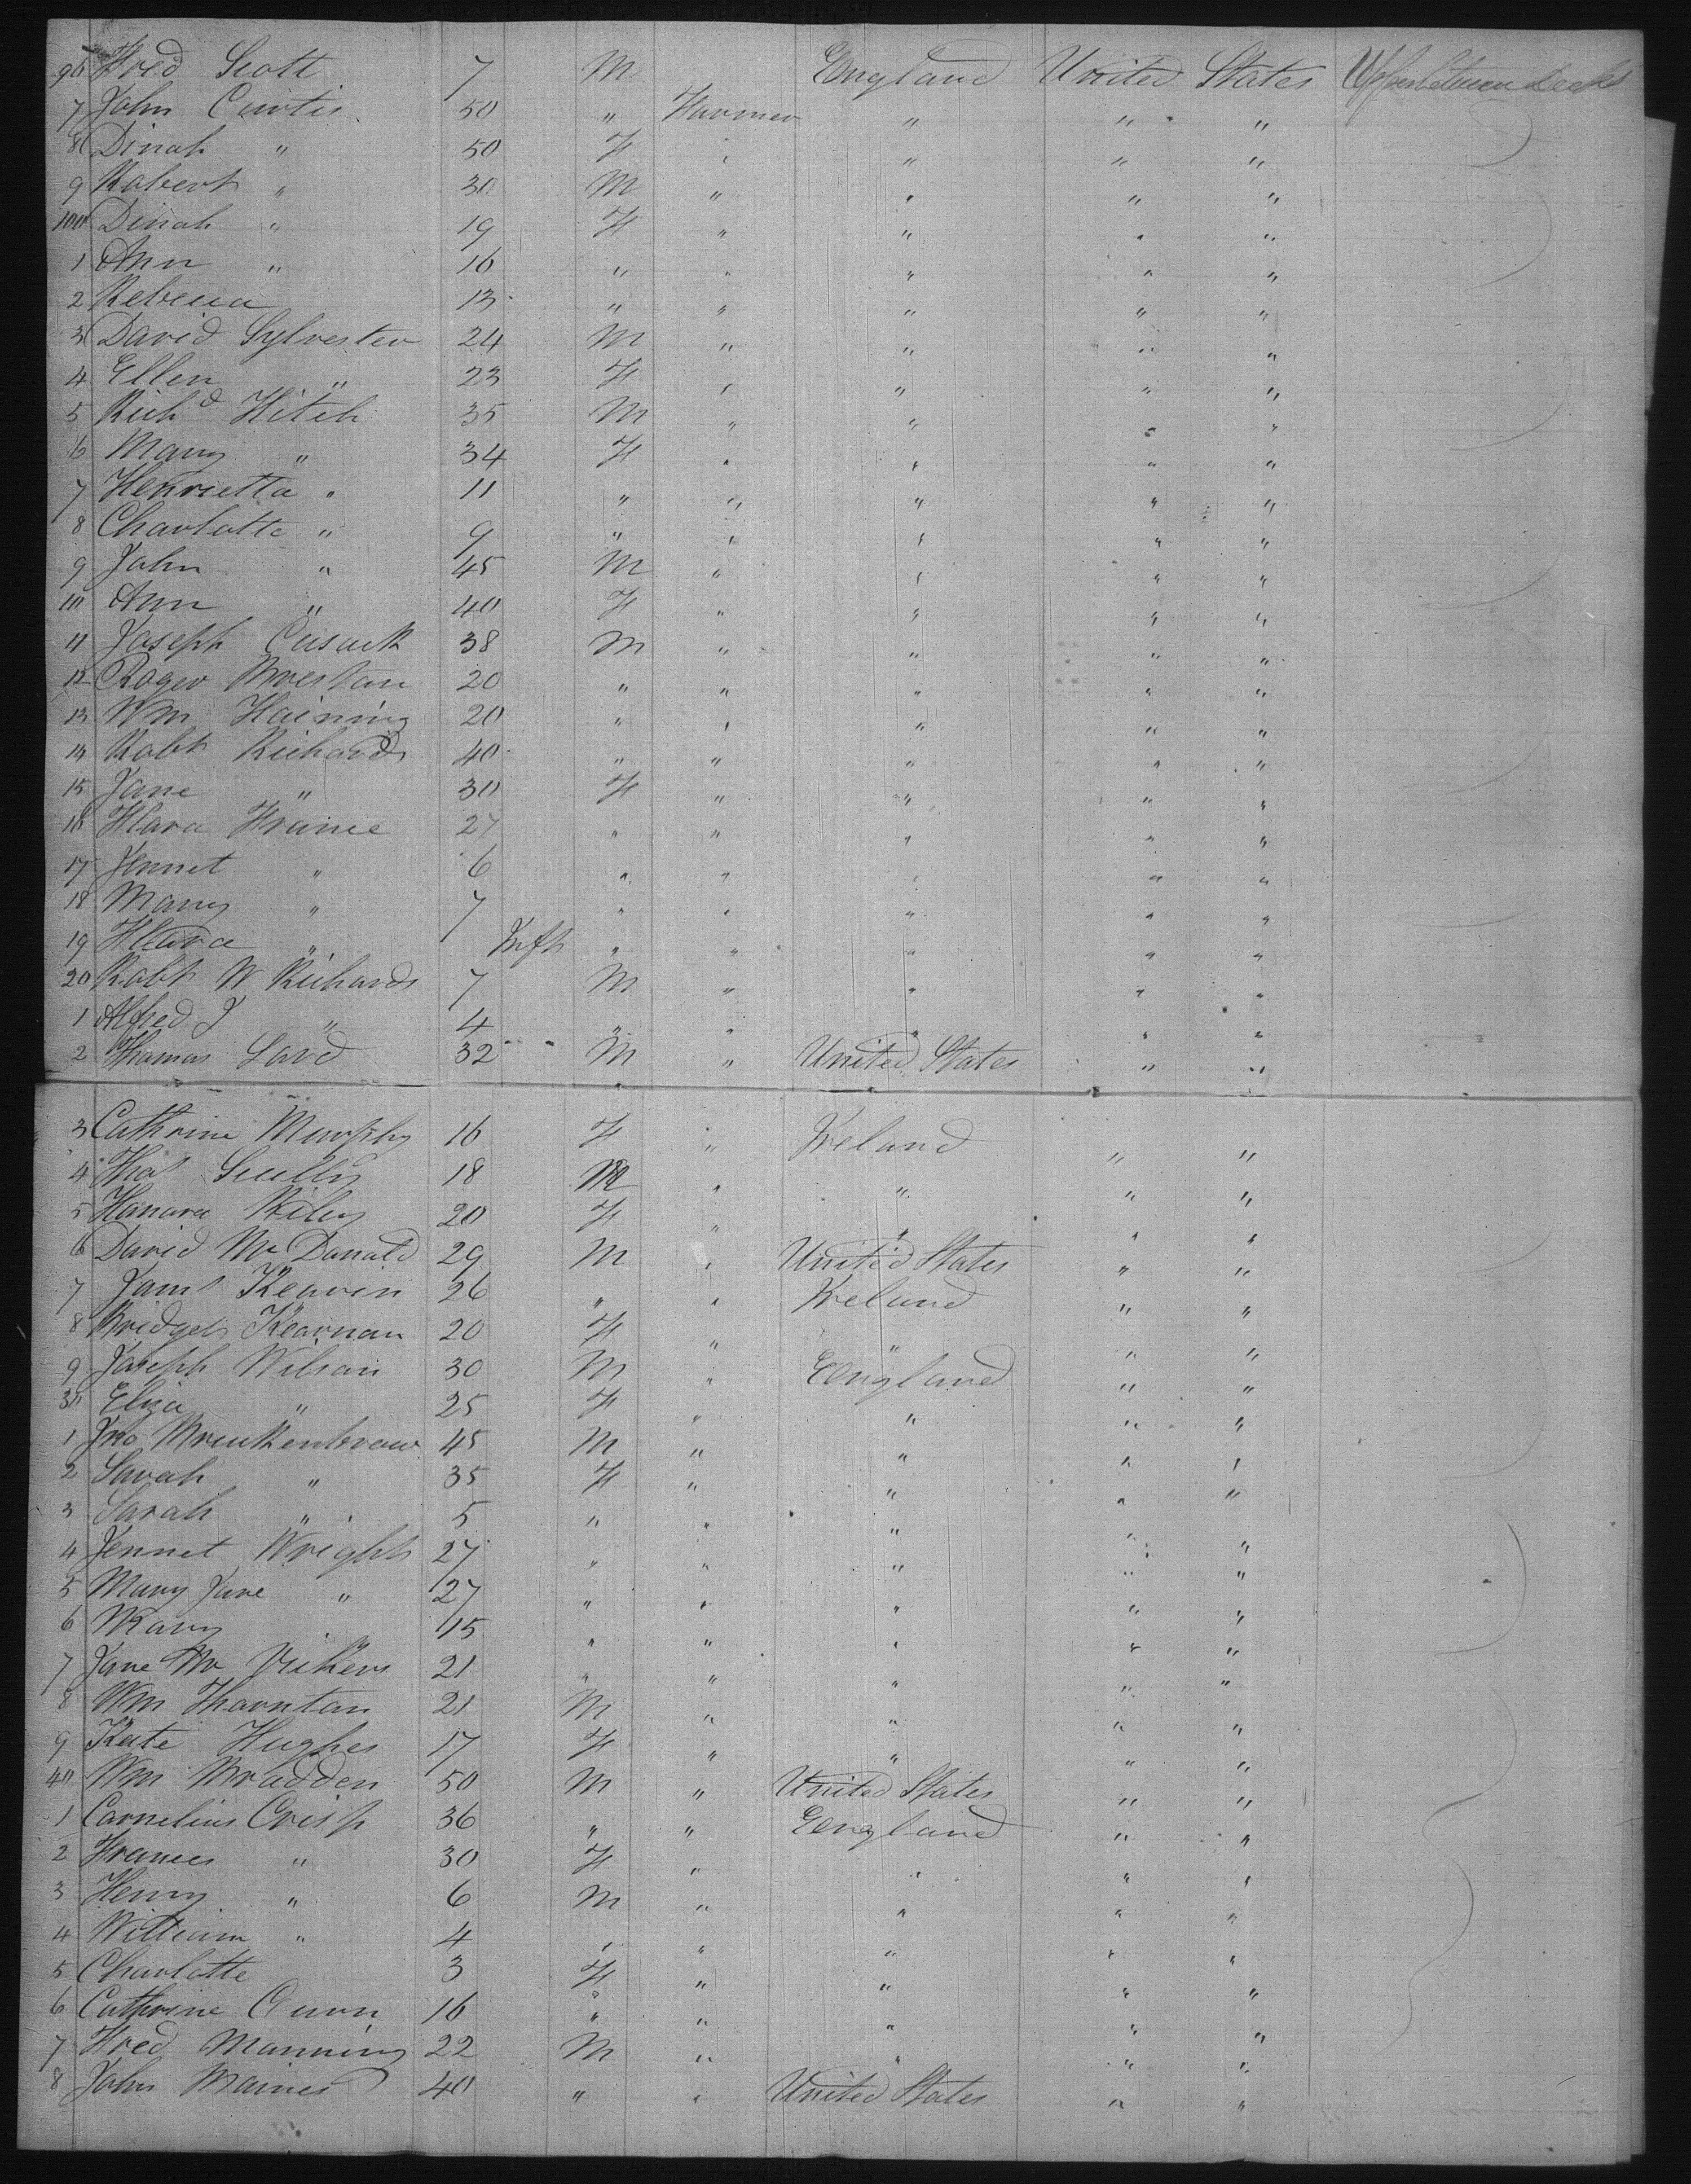 96 Fred Scott 7 M England United States Upper between Decks
7 John Curtis 50 " Farmer " " "
8 Dinah " 50 F " " " "
9 Robert " 30 M " " " "
100 Dinah " 19 F " " " "
1 Ann " 16 " " " " "
2 Rebecca 13 " " " " "
3 David Sylvester 24 M " " " "
4 Ellen " 23 F " " " "
5 Richd Fitch 35 M " " " "
6 Mary " 34 F " " " "
7 Henrietta " 11 " " " " "
8 Charlotte " 9 " " " " "
9 John " 45 M " " " "
10 Ann " 40 F " " " "
11 Joseph Cusack 38 M " " " "
12 Roger 20 " " " " "
13 Wm Haining 20 " " " " "
14 Robt Richards 40 " " " " "
15 Jane " 30 F " " " "
16 Flara France 27 " " " " "
17 Jennet " 6 " " " " "
18 Mary " 7 " " " " "
19 Flara " Inft " " " " "
20 Robt W Richards 7 M " " " "
1 Alfred J " 4 " " " " "
2 Thomas Lord 32 M " United States " "
3 Cathrine Murphy 16 F " Ireland " "
4 Thos Scully 18 M " " " "
5 Hanora Riley 20 F " " " "
6 David McDonald 29 M " United States " "
7 Jams Keaven 26 " " Ireland " "
8 Bridget Kearnan 20 F " " " "
9 Joseph Wilson 30 M " England " "
30 Eliza " 25 F " " " "
1 Jno 45 M " " " "
2 Sarah " 35 F " " " "
3 Sarah " 5 " " " " "
4 Jennet Wright 27 " " " " "
5 Mary Jane " 27 " " " " "
6 Mary " 15 " " " " "
7 Jane Mc Vickers 21 " " " " "
8 Wm Thornton 21 M " " " "
9 Kate Hughes 17 F " " " "
40 Wm Bradden 50 M " United States " "
1 Cornelius Crisp 36 " " England " "
2 Frances " 30 F " " " "
3 Henry " 6 M " " " "
4 William " 4 " " " " "
5 Charlotte 3 F " " " "
6 Cathrine 16 " " " " "
7 Fred Manning 22 M " " " "
8 John Maines 40 " " United States " "